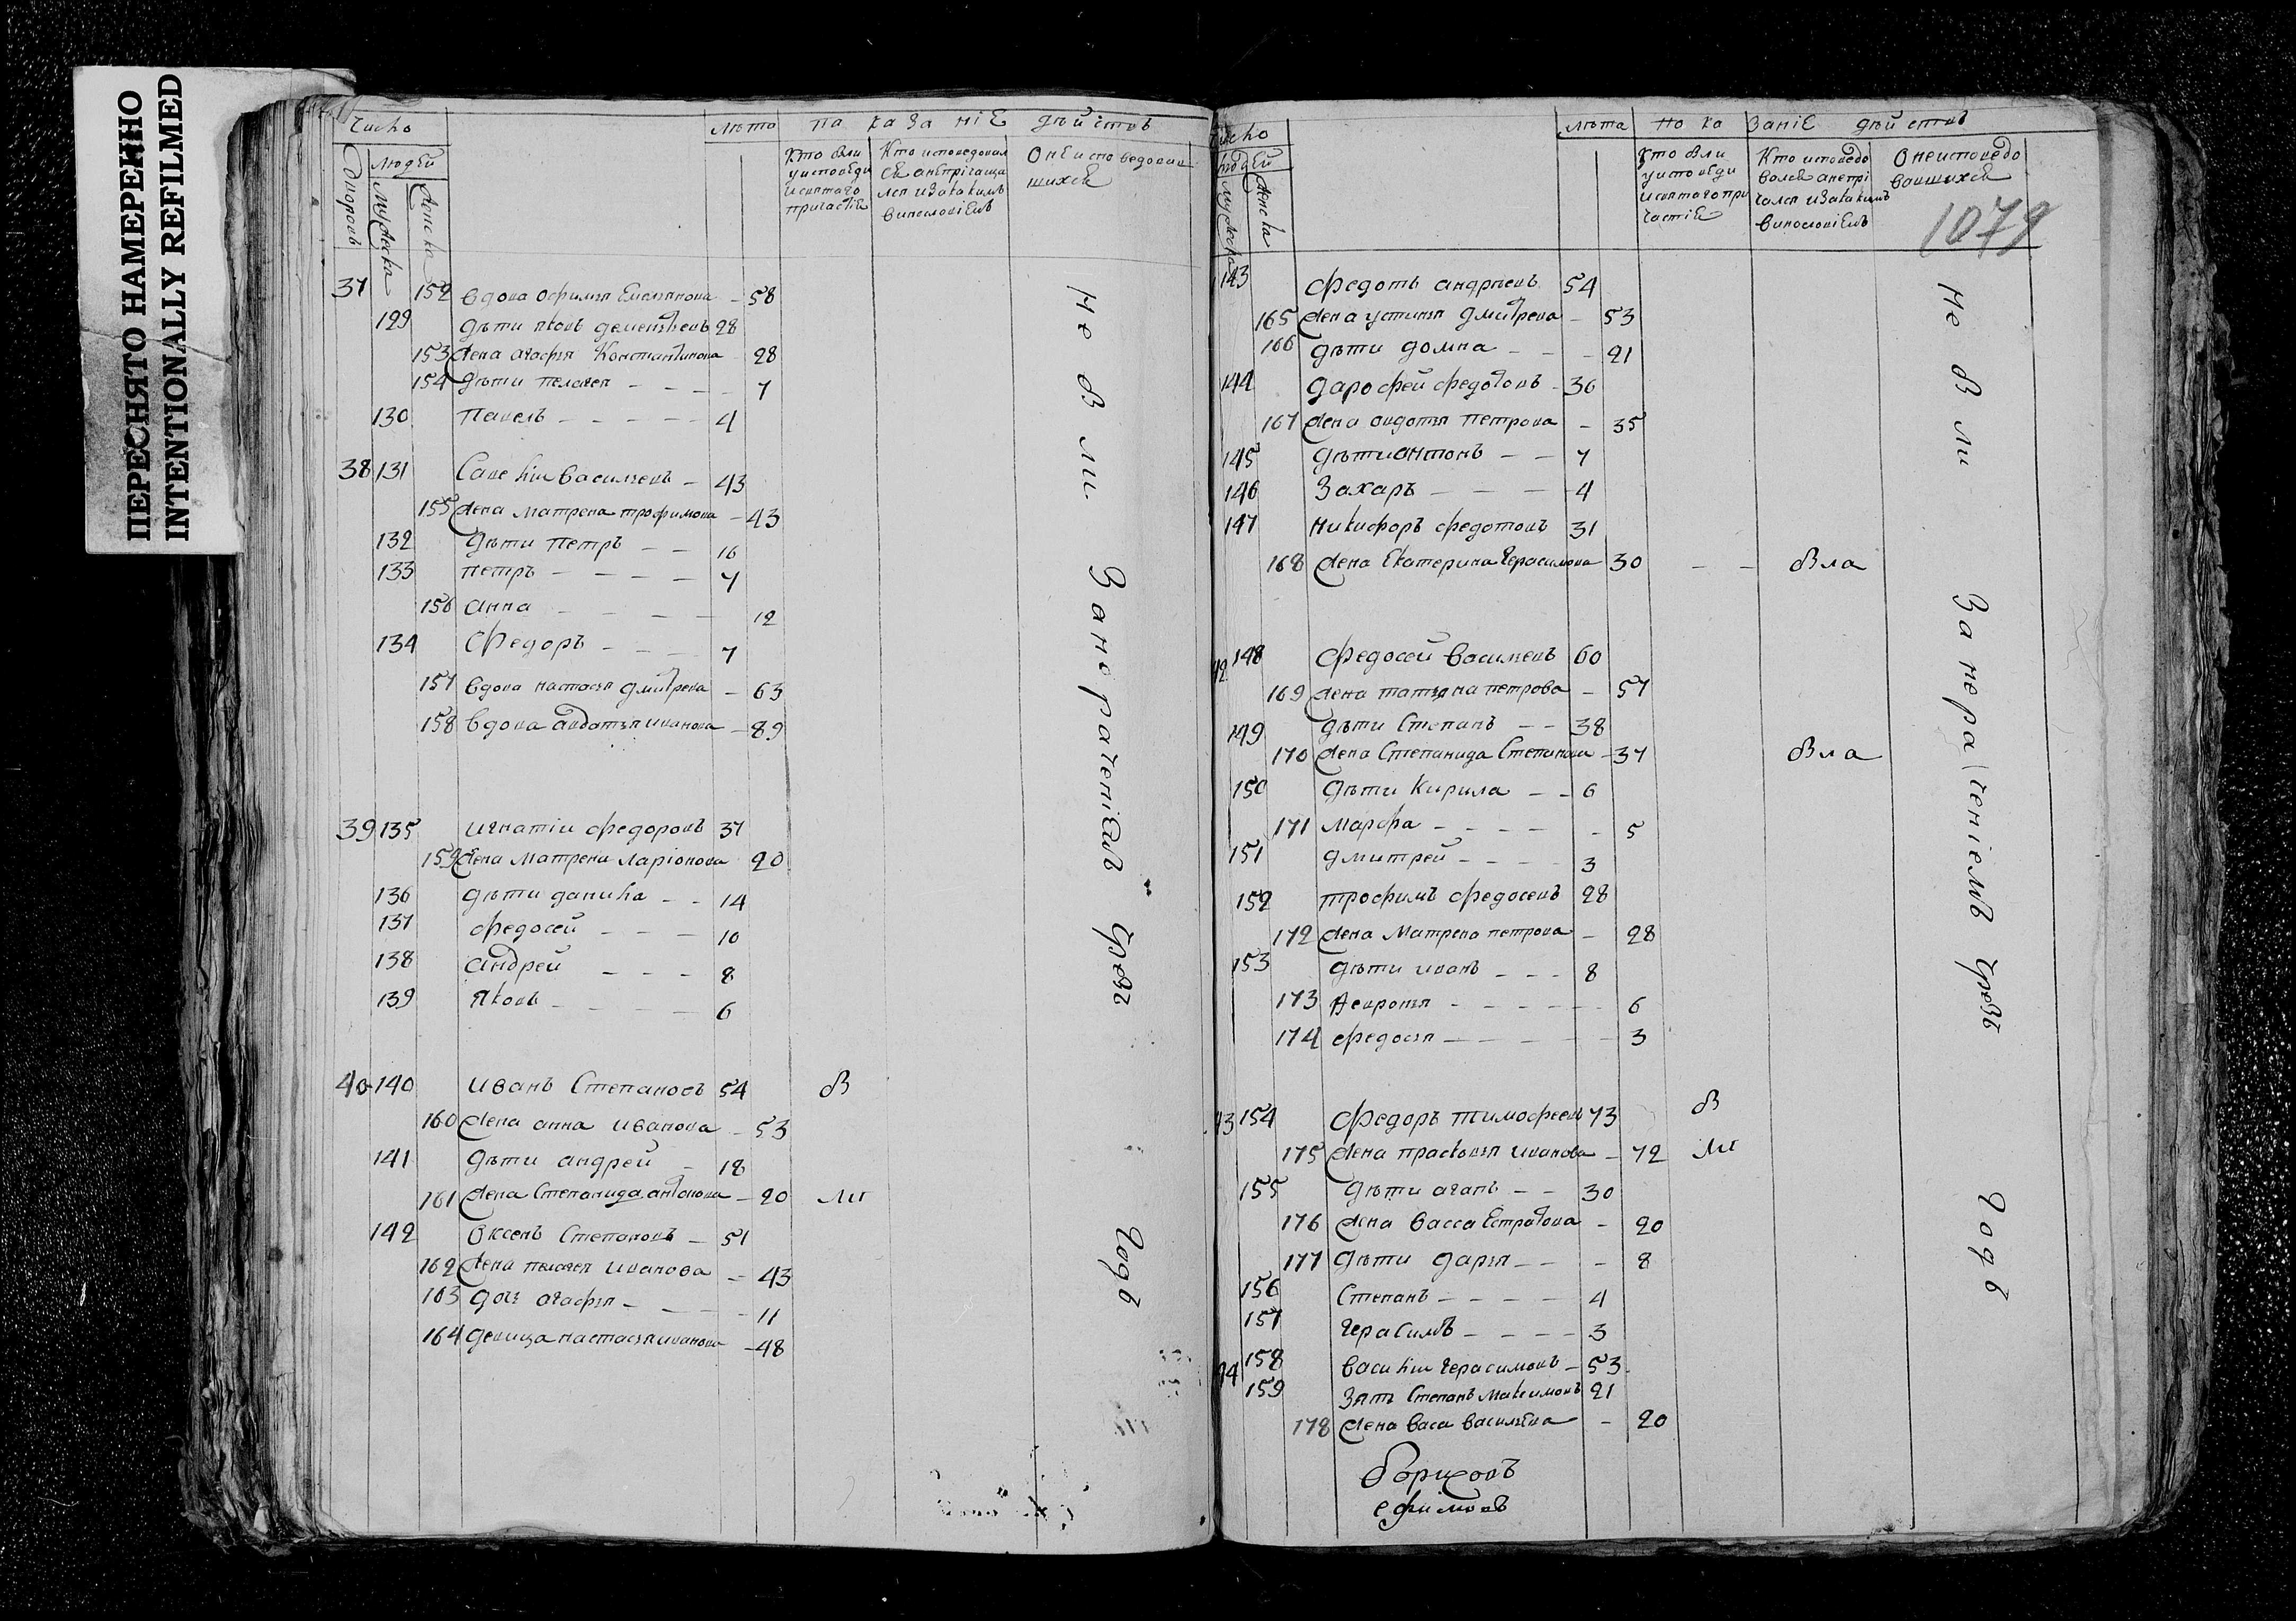 ПЕРЕСНЯТО НАМЕРЕННО
INTENTIONALLY REFILMED
Число
лѣта
па ка за ніЕ дѣй ствъ
людЕй
дворовъ
мужеска
женска
Кто бли
у исповѣди
и святаго
причастіЕ
Кто исповедовал
сЕ а нЕ прічаща
лся и за какимъ
винословіЕмъ
О нЕ исповедовав
шихсЕ
37 152 вдова офимья Емельянова – 58
129 дѣти яковъ дементьевъ 28
153 жена агафья Константинова 28
154 дѣти пелагея – – – – 7
130 Павелъ – – – – – 4
38 131 Савелій Васильевъ – 43
155 жена матрена трофимова – 43
132 дѣти Петръ – – 16
133 петръ – – – – 7
156 анна – – – – 12
134 Федоръ – – – 7
157 вдова настасья дмитрева – 63
158 вдова авдотья иванова – 89
39 135 игнатій федоровъ 37
159 жена матрена ларіонова 20
136 дѣти данила – – 14
137 федосей – – – 10
138 андрей – – – 8
139 Яковъ – – – – 6
40 140 иванъ Степановъ 54 б
160 жена анна иванова – 53
141 дѣти андрей – 18
161 жена Степанида антонова – 20 ли
142 Оксенъ Степановъ – 51
162 жена пелагея иванова – 43
163 дочь агафья – – – – 11
164 девица настасья иванова – 48
не б ли За нерачениЕмъ чрезъ годъ
Число
лѣта
по ка заніЕ дѣй ствъ
людЕй
мужеска
женска
Кто бли
у исповЕди
и святаго при
частіЕ
Кто исповедо
валсЕ а не прі
чался и за какимъ
винословіЕмъ
О неисповедо
вавшихсЕ
1079
143 федотъ андреевъ 54
165 жена устинья дмитрева – 53
166 дѣти домна – – – 21
144 дарофей федотовъ – 36
167 жена авдотья петрова – 35
145 дѣти антонъ – – 7
146 Захаръ – – – 4
147 никифоръ федотовъ 31
168 жена Екатерина герасимова 30 – – бла
42 148 федосей васильевъ 60
169 жена татьяна петрова – 57
149 дѣти Степанъ – – 38
170 жена Степанида Степанова – 37 бла
150 дѣти Кирила – – 6
171 марфа – – – – – 5
151 дмитрей – – – – 3
152 трофимъ федосеевъ 28
172 жена матрена петрова – 28
153 дѣти иванъ – – – 8
173 Февронья – – – – – 6
174 федосья – – – – – 3
43 154 федоръ тимофеевъ 73 б
175 жена прасковья иванова – 72 ли
155 дѣти агапъ – – 30
176 жена васса Естратова – 20
177 дѣти дарья – – – 8
156 Степанъ – – – – – 4
157 герасимъ – – – – 3
44 158 василій герасимовъ – 53
159 Зять Степанъ максимовъ 21
178 жена васа васильЕва – 20
не б ли За нерачениемъ чрезъ годъ
ефимовъ